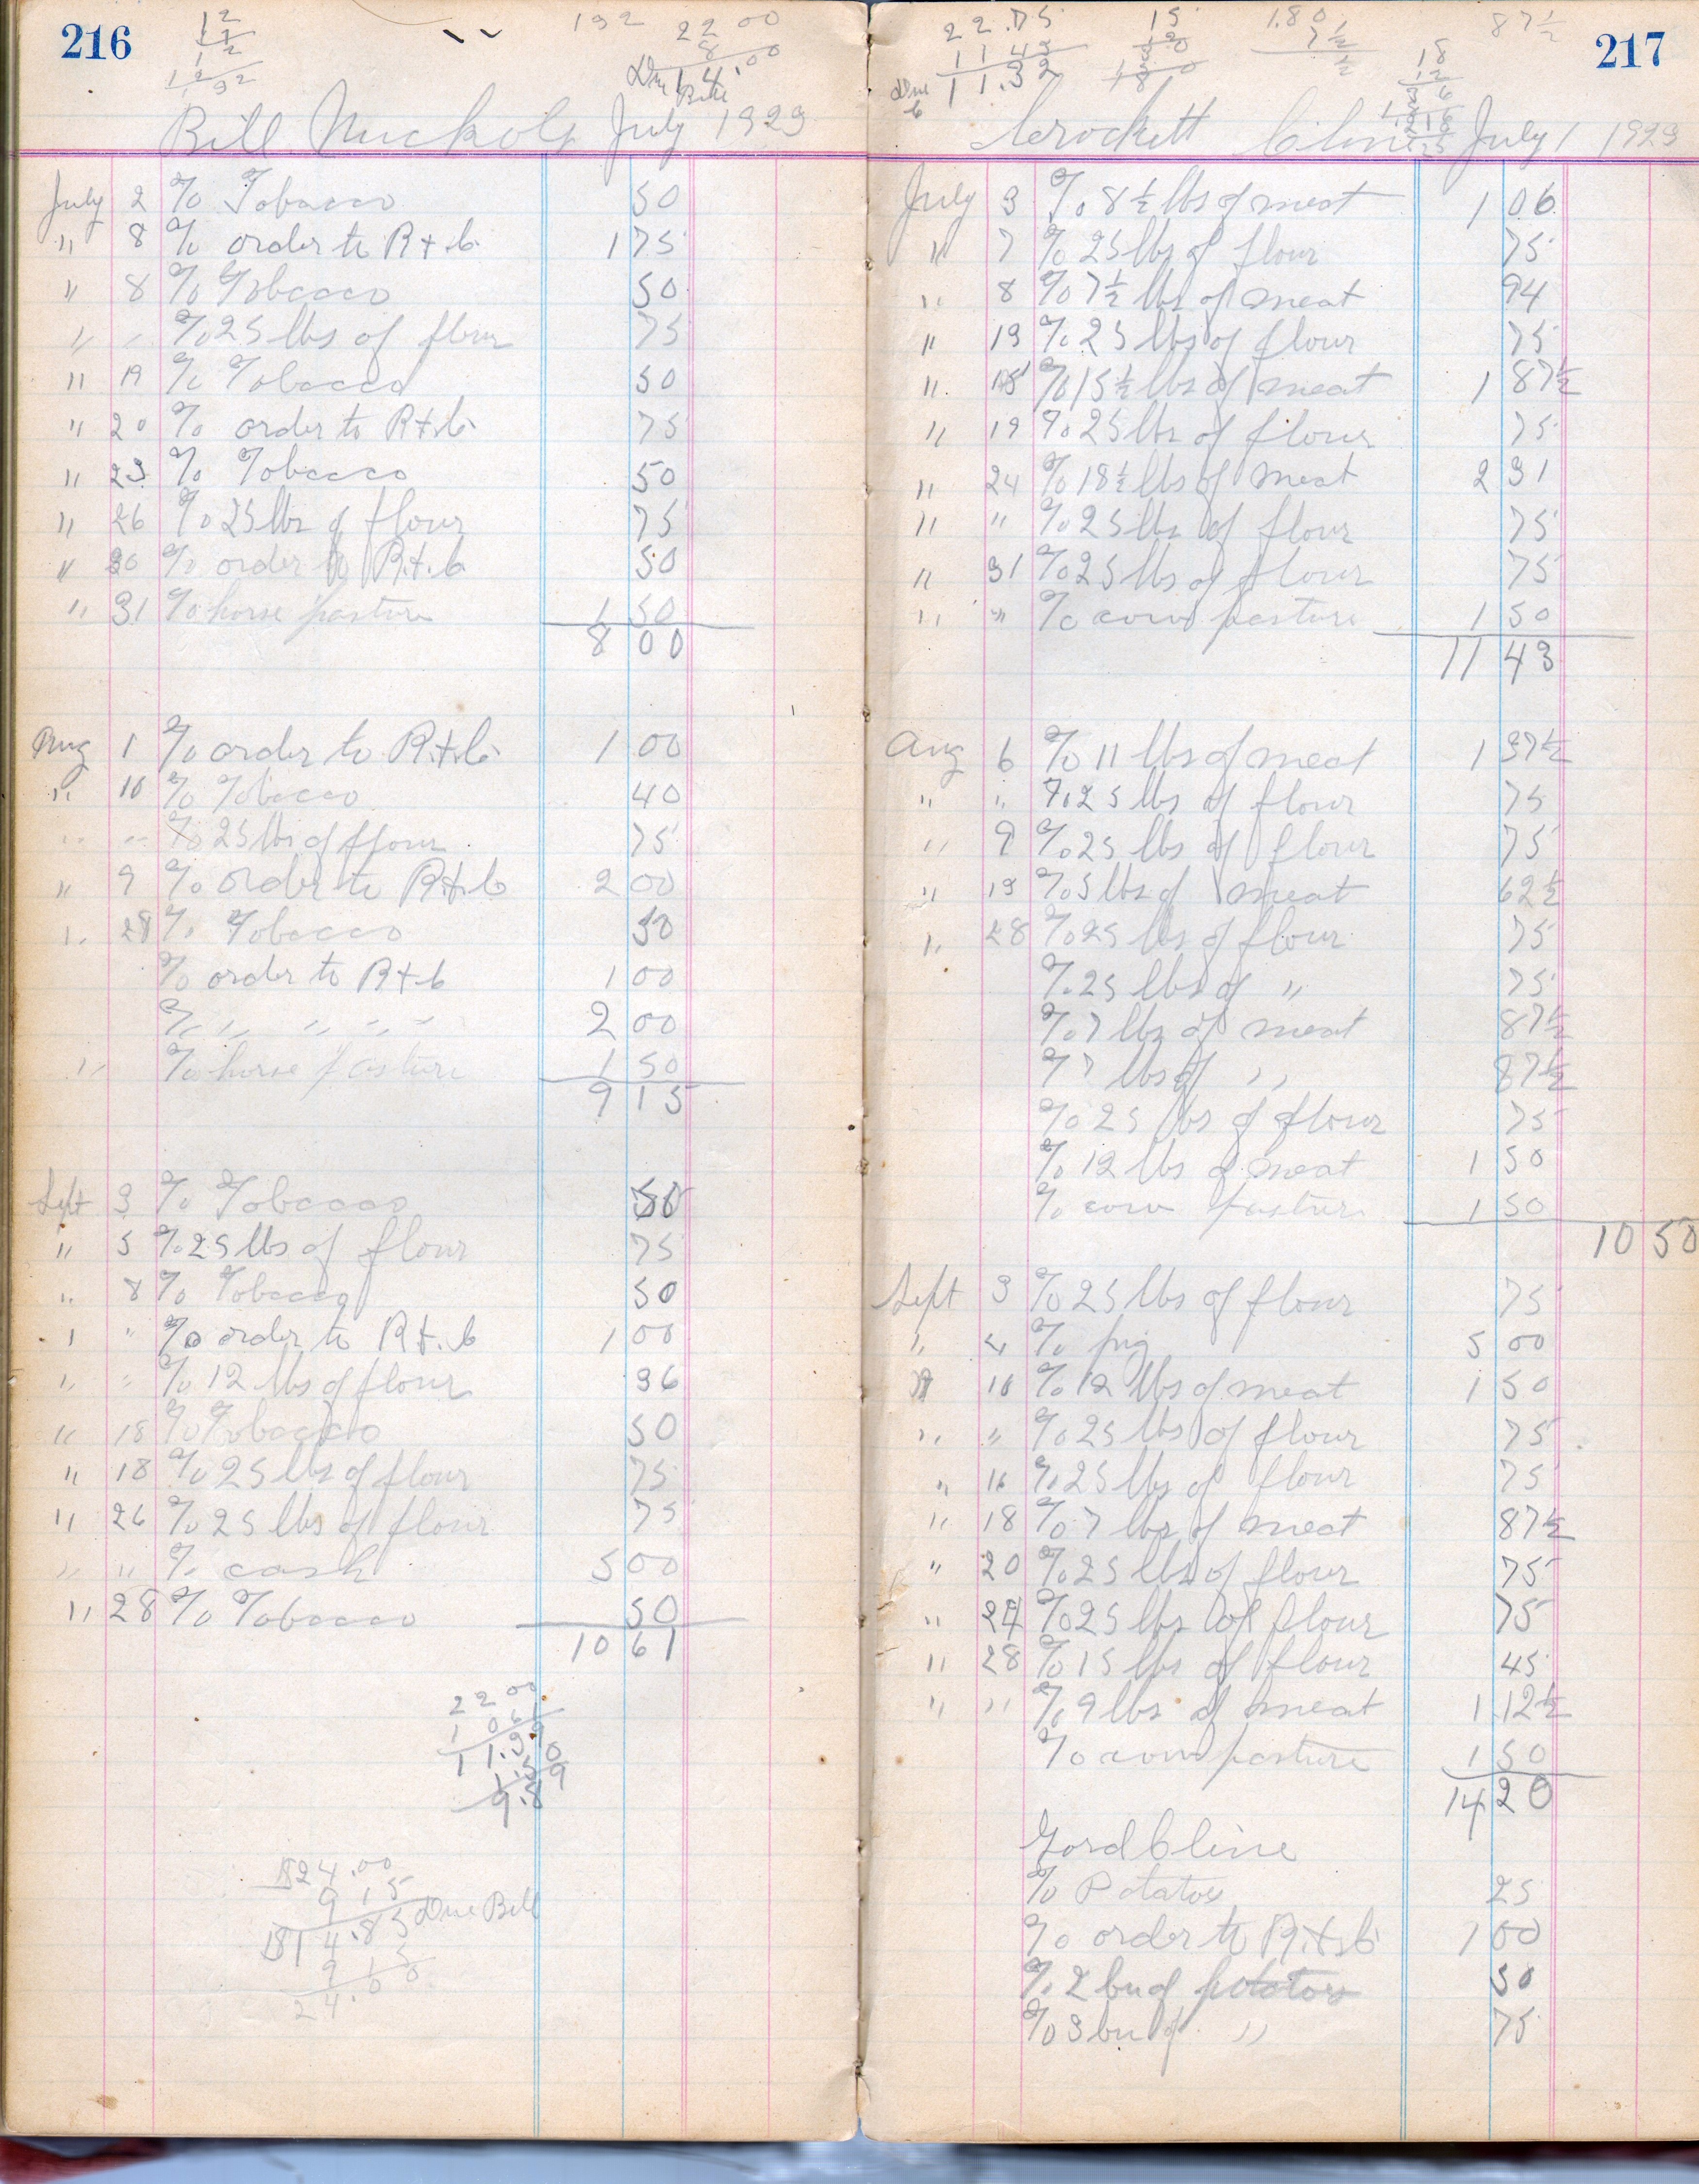 216
12
1 1/2
1 2
1 9 2
192
22 00
8 00
Due 14.00
Bill
Bill Nuckols July 1923
July 2 % Tobacco 50
" 8 % order to R + C 1 75
" 8 % Tobacco 50
" " % 25 lbs of flour 75
" 19 % Tobacco 50
" 20 % order to R + C 75
" 23 % Tobacco 50
" 26 % 25 lbs of flour 75
" 30 % order to R + C 50
" 31 % horse pasture 1 50
8 00
Aug 1 % order to R + C 1 00
" 10 % Tobacco 40
" " % 25 lbs of flour 75
" 9 % order to R + C 2 00
" 28 % Tobacco 50
% order to R + C 1 00
% " " " " 2 00
" % horse pasture 1 50
9 15
Sept 3 % Tobacco 50
" 5 % 25 lbs of flour 75
" 8 % Tobacco 50
" " % order to R + C 1 00
" " % 12 lbs of flour 36
" 18 % Tobacco 50
" 18 % 25 lbs of flour 75
" 26 % 25 lbs of flour 75
" " % cash 5 00
" 28 % Tobacco 50
10 61
22 00
10 61
11.39
1.50
9.89
$24.00
9 15
$14.85 Due Bill
9 15
24.00
217
22.75
11 43
Due 11.32
15
1.80
7 1/2
87 1/2
18
Crockett Cline July 1 1923
July 3 % 8 1/2 lbs of meat 1 06
" 7 % 25 lbs of flour 75
" 8 % 7 1/2 lbs of meat 94
" 13 % 25 lbs of flour 75
" 15 % 15 1/2 lbs of meat 1 87 1/2
" 19 % 25 lbs of flour 75
" 24 % 18 1/2 lbs of meat 2 31
" " % 25 lbs of flour 75
" 31 % 25 lbs of flour 75
" " % cow pasture 1 50
11 43
Aug 6 % 11 lbs of meat 1 37 1/2
" " % 25 lbs of flour 75
" 9 % 25 lbs of flour 75
" 13 % 5 lbs of meat 62 1/2
" 28 % 25 lbs of flour 75
% 25 lbs of " 75
% 7 lbs of meat 87 1/2
% 7 lbs of " 87 1/2
% 25 lbs of flour 75
% 12 lbs of meat 1 50
% cow pasture 1 50
10 50
Sept 3 % 25 lbs of flour 75
" 4 % pig 5 00
" 10 % 12 lbs of meat 1 50
" " % 25 lbs of flour 75
" 16 % 25 lbs of flour 75
" 18 % 7 lbs of meat 87 1/2
" 20 % 25 lbs of flour 75
" 24 % 25 lbs of flour 75
" 28 % 15 lbs of flour 45
" " % 9 lbs of meat 1 12 1/2
% cow pasture 1 50
14 20
Gord Cline
% Potatoes 25
% order to R + C 1 00
% 2 bu of potatoes 50
% 3 bu of " 75